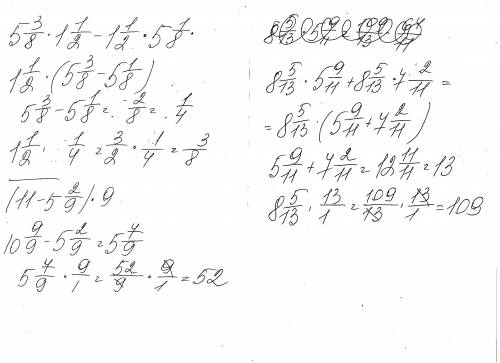 5 3/8 · 1 1/2 - 1 1/2 · 5 1/8 ·
1 1/2 · (5 3/8 - 5 1/8)
5 3/8 - 5 1/8 = 2/8 = 1/4
1 1/2 · 1/4 = 3/2 · 1/4 = 3/8
(11 - 5 2/9) · 9
10 9/9 - 5 2/9 = 5 7/9
5 7/9 · 9/1 = 52/9 · 9/1 = 52
8 5/13 · 5 9/11 + 8 5/13 · 7 2/11 =
= 8 5/13 · (5 9/11 + 7 2/11)
5 9/11 + 7 2/11 = 12 11/11 = 13
8 5/13 · 13/1 = 109/13 · 13/1 = 109